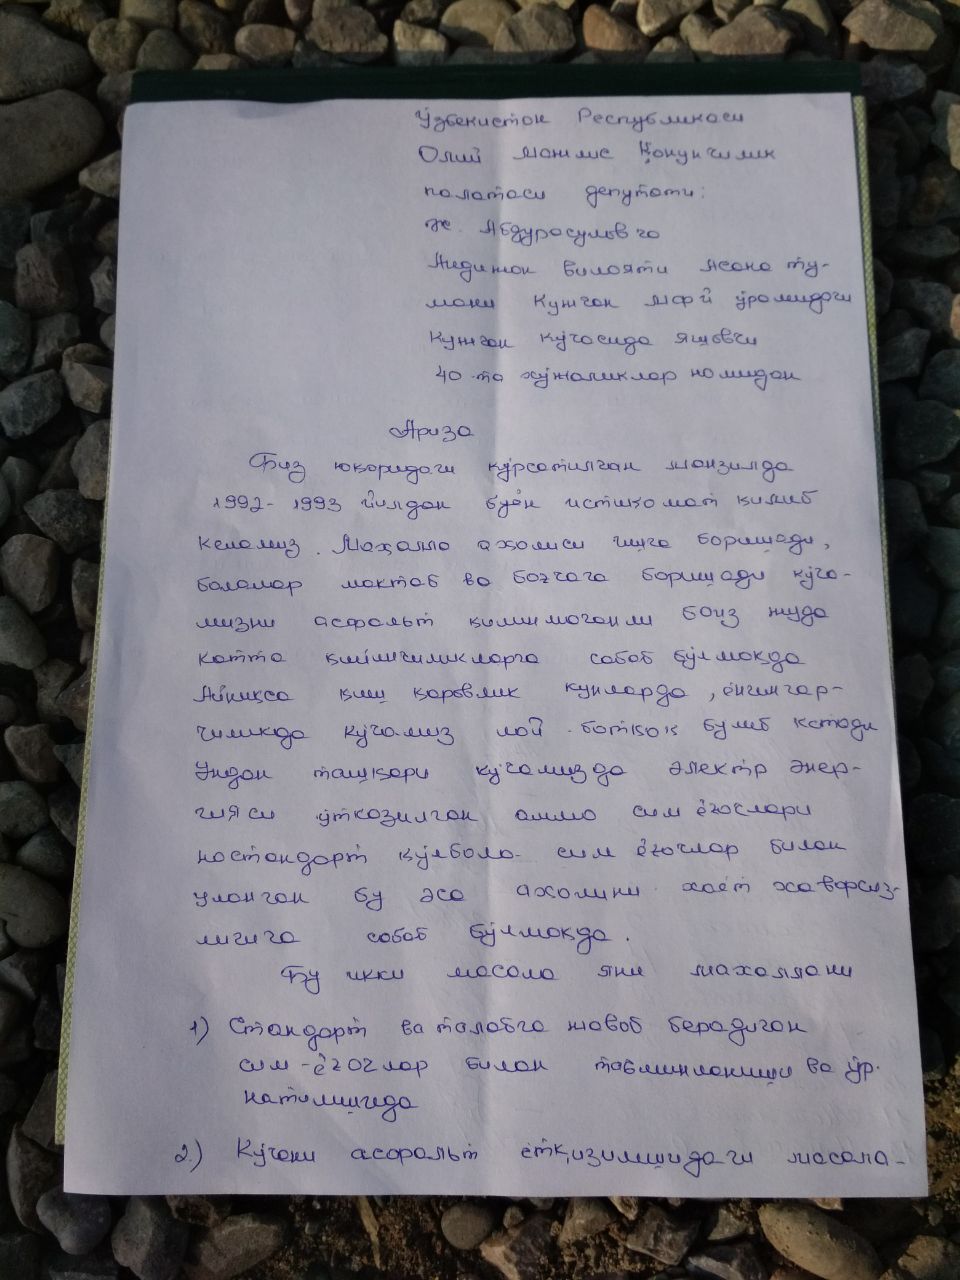 Ўзбекистон Республикаси
Олий мажлис Қонунчилик
палатаси депутати:
Ж. Абдурасуловга
Андижон вилояти Асака ту-
мани Кужган МФЙ ўрамидаги
Кужган кўчасида яшовчи
40-та хўжаликлар номидан
Ариза
Биз юкоридаги кўрсатилган манзилда
1992-1993 йилдан буён истиқомат килиб
келамиз. Маҳалла ахолиси ишга боришади,
болалар мактаб ва боғчага боришади кўча-
мизни асфальт килинмаганли боиз жуда
катта кийинчиликларга сабаб бўлмоқда
Айниқса қиш қоровлик кунларда, ёнгингар-
чиликда кўчамиз лой-ботқоқ булиб кетади
Ундан ташқари кўчамизда электр энер-
гияси ўтказилган аммо сим ёғочлари
ностандарт қўлбола сим ёғочлар билан
уланган бу эса ахолини хаёт хавфсиз-
лигига сабаб бўлмоқда.
Бу икки масала яни махаллани
1) Стандарт ва талабга жавоб берадиган
сим-ёғочлар билан таъминланиши ва ўр-
натилишида
2.) Кўчани асфальт ётқизилишидаги масала-